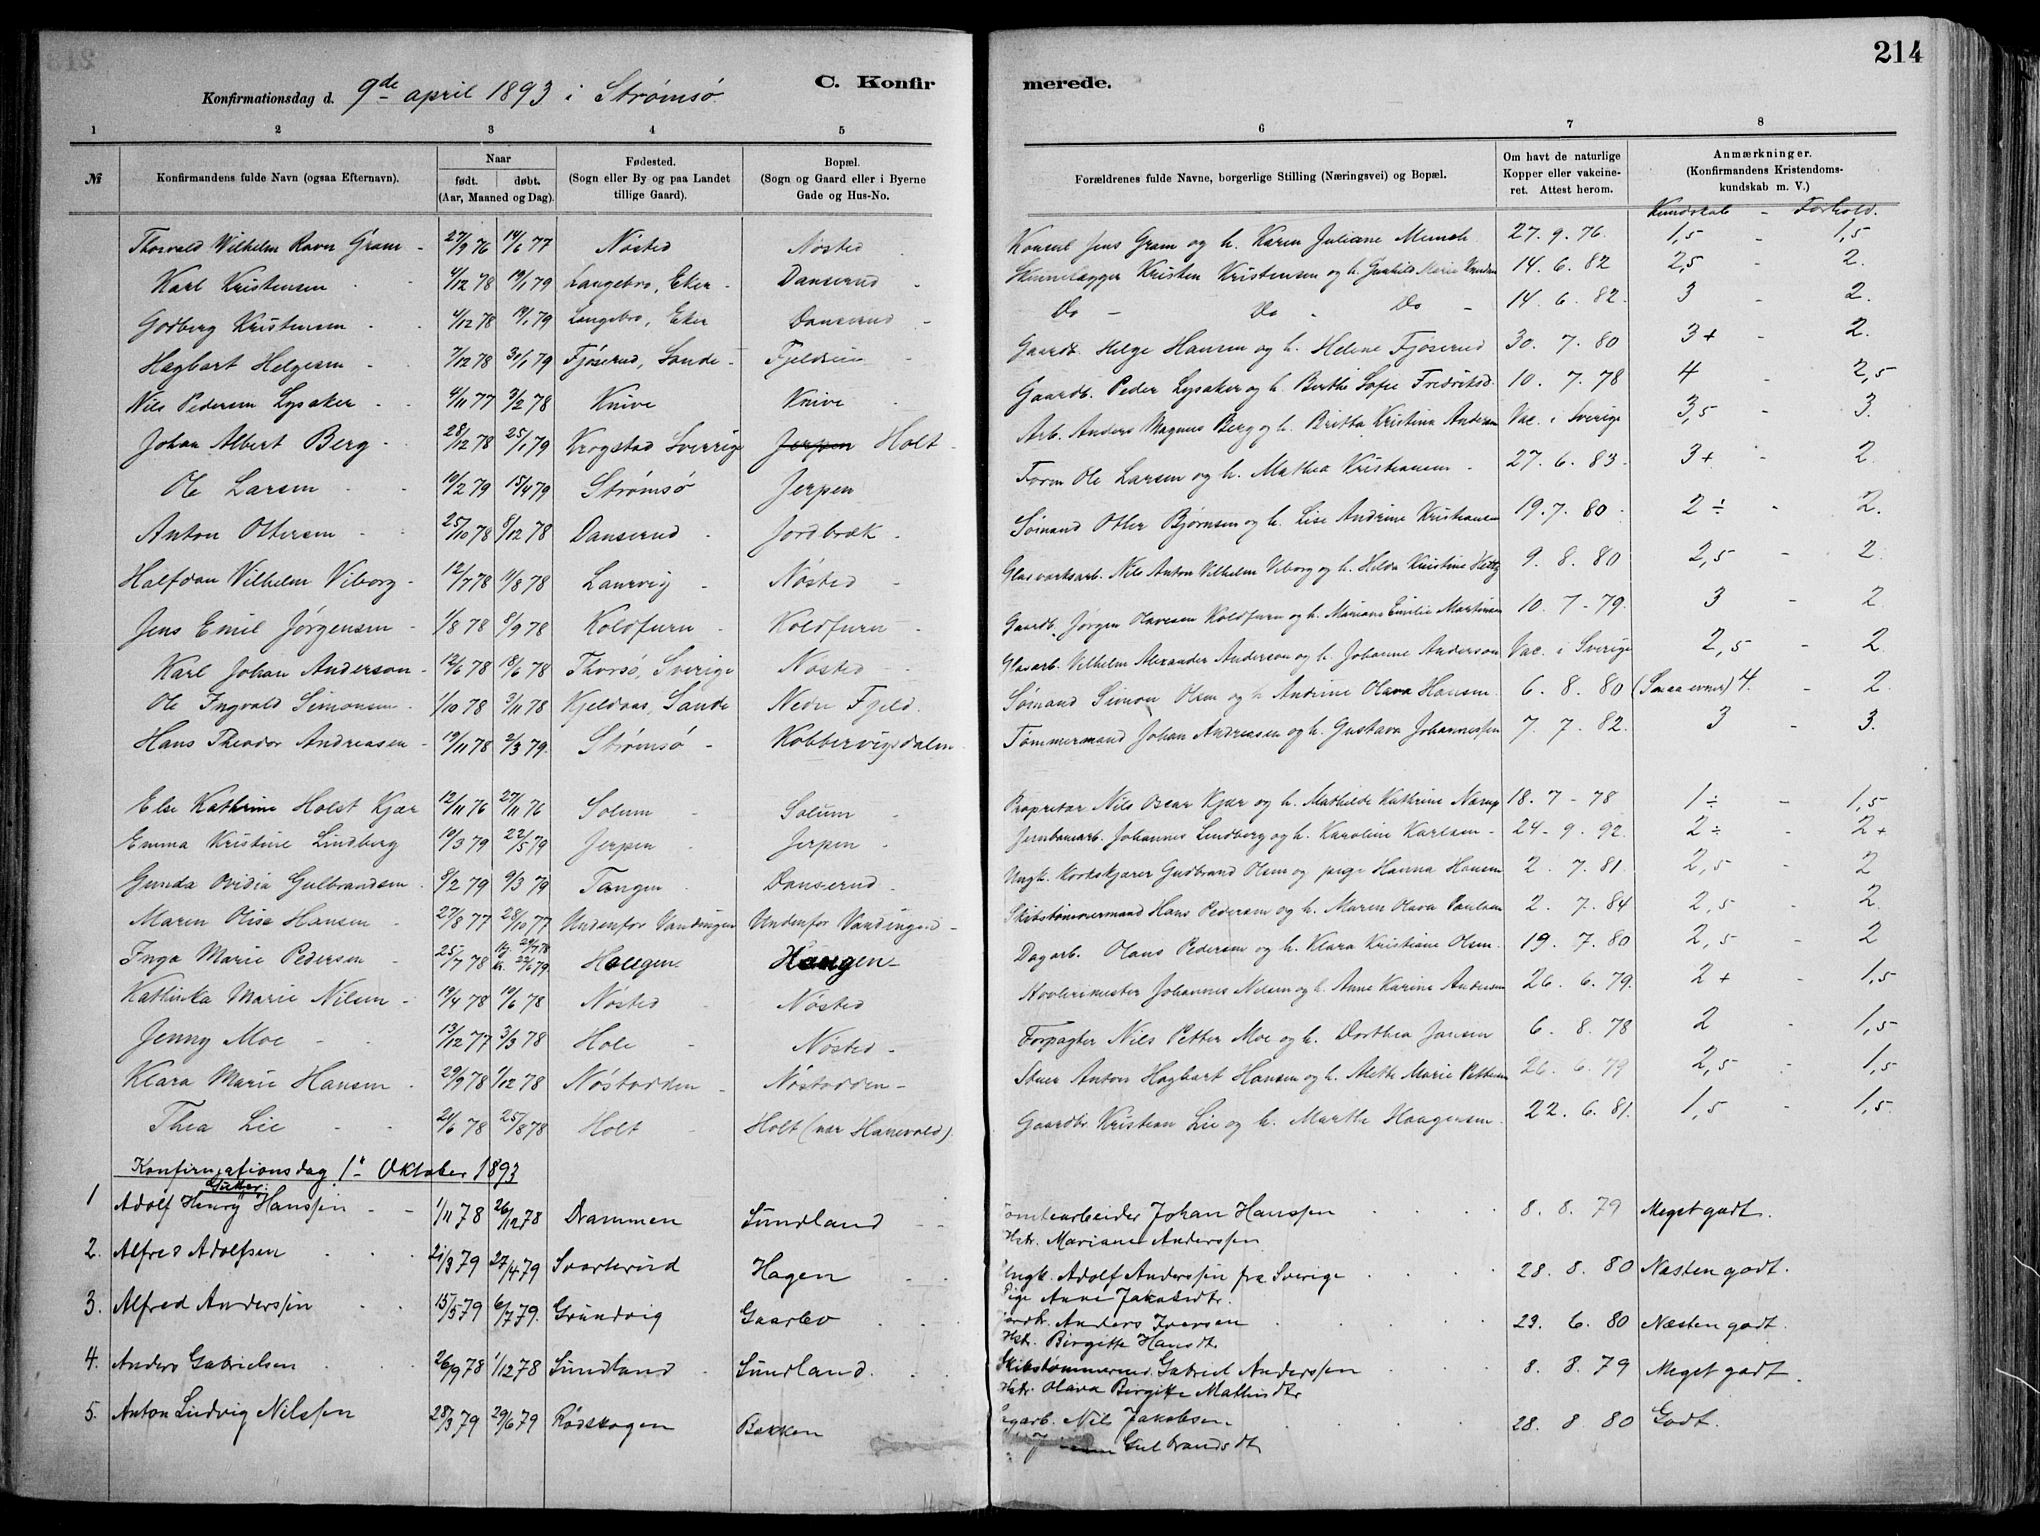 214
Konfirmationsdag d. 9de april 1893 i Strømsø. C. Konfir merede.
1 2 3 4 5 6 7 8
№ Konfirmandens fulde Navn (ogsaa Efternavn). Naar født. døbt. (Aar, Maaned og Dag). Fødested. (Sogn eller By og paa Landet tillige Gaard). Bopæl. (Sogn og Gaard eller i Byerne Gade og Hus-No. Forældrenes fulde Navne, borgerlige Stilling (Næringsvei) og Bopæl. Om havt de naturlige Kopper eller vakcineret. Attest herom. Anmærkninger. (Konfirmandens Kristendomskundskab m. V.)
Kundskab - Forhold.
Thorvald Vilhelm Ravn Gram - 27/9 76 14/6 77 Nøsted Nøsted Konsul Jens Gram og h. Karen Juliane Munch 27. 9. 76. 1,5 - 1,5
Karl Kristensen 4/12 78 19/1 79 Langebro, Eker - Danserud - Skinnelægger Kristen Kristensen og h. Gunhild Marie 14. 6. 82 2,5 - 2.
Godberg Kristensen 4/12 78 19/1 79 Langebro, Eker Danserud - Do - Do - Do - 14. 6. 82. 3 2.
Hagbart Helgesen - 7/12 78 30/1 79 Fjøserud, Sande - Gaardb. Helge Hansen og h. Helene Fjøserud 30. 7. 80 3+ - 2.
Nils Pedersen Lysaker - 4/11 77 3/2 78 Knive Knive Gaardb. Peder Lysaker og h. Berthe Sofie Fredriksd. 10. 7. 78 4 - 2,5
Johan Albert Berg - 28/12 78 25/1 79 Krogstad Sverrige Jerpen Holt - Arb. Anders Magnus Berg og h. Britta Kristina Andersen Vac. i Sverige 3,5 - 3.
Ole Larsen 19/2 79 15/4 79 Strømsø Jerpen Form Ole Larsen og h. Mathea Kristiansen - 27. 6. 83. 3+ 2.
Anton Ottersen 25/10 78 8/12 78 Danserud - Jordbræk. Sømand Otter Bjørnsen og h. Lise Andrine Kristiansen 19. 7. 80 - 2 ÷ - 2.
Halfdan Vilhelm Viborg - 12/7 78 11/8 78 Laurvig - Nøsted - Glasværksarb. Nils Anton Vilhelm Viborg og h. Hilda Kristine 9. 8. 80 2,5 - 2.
Jens Emil Jørgensen - 1/8 78 8/9 78 Koldfurn - Koldfurn - Gaardb. Jørgen Olavesen Koldfurn og h. Mariane Emilie Martinsen 10. 7 - 79. 3 - 2
Karl Johan Anderson - 12/6 78 18/6 78 Thorsø, Sverige Nøsted - Glasarb. Vilhelm Alexander Anderson og h. Johanne Anderson Vac. i Sverige 2,5 - 2.
Ole Ingvald Simonsen - 1/10 78 3/11 78 Kjeldaas, Sande Nedre Fjeld. Sømand Simon Olsen og h. Andrine Olava Hansen. 6. 8. 80 (Smaa evner) 4. - 2.
Hans Theodor Andreasen - 19/11 78 2/3 79. Strømsø - Kobbervigsdalen Tømmermand Johan Andreasen og h. Gustava Johannessen 7. 7. 82. 3 - 3.
Else Kathrine Holst Kjær 12/11 76 27/11 76 Solum - Solum - Proprietær Nils Oscar Kjær og h. Mathilde Kathrine Nærup 18. 7 - 78 1 ÷ - 1,5
Emma Kristine Lindberg 19/3 79 22/5 79 Jerpen - Jerpen - Jernbanarb. Johannes Lindberg og h. Karoline Karlsen - 24. 9. 92. 2 ÷ - 2+
Gunda Ovidia Gulbrandsen. 8/2 79 9/3 79 Tangen - Danserud - Ungk. Korkskjærer Gudbrand Olsen og pige Hanna Hansen 2. 7. 81. 2,5 - 2
Maren Olise Hansen - 27/8 77 28/10 77 Undenfor Vandingen Undenfor Vandingen - Skibstømmermand Hans Pedersen og h. Maren Olava Paulsen 2. 7. 84 2,5 - 2.
Inga Marie Pedersen - 25/7 78 22/6 79 Haugen Haugen - Dagarb. Olaus Pedersen og h. Klara Kristiane Olsen. - 19. 7. 80 2,5 - 2
Kathinka Marie Nilsen - 19/4 78 10/6 78 Nøsted - Nøsted Høvlerimester Johannes Nilsen og h. Anne Karine Andersen 26. 6. 79. 2+ - 1,5
Jenny Moe - 13/12 77 3/3 78 Hole - Nøsted - Forpagter Nils Petter Moe og h. Dorthea Jansen 6. 8. 78 2 - 1,5 -
Klara Marie Hansen - 29/9 78 1/12 78 Nøstodden - Nøstodden - Stuer Anton Hagbart Hansen og h. Mette Marie Pettersen 26. 6. 79 2,5 - 1,5
Thea Lie - 21/6 78 25/8 78 Holt - Holt (nær Hanevold). Gaardbr Kristian Lie og h. Marthe Haagensen. 22. 6. 81. 1,5 - 1,5.
Konfirmationsdag 1ste Oktober 1893
Gutter:
1 Adolf Henry Hanssen 1/11 78 26/12 78 Drammen Sundland Tomtearbeider Johan Hanssen 8. 8. 79 Meget godt.
Hstr. Mariane Anderssen
2. Alfred Adolfsen 21/3 79 27/4 79 Svarterud Hagen Ungk. Adolf Anderssen fra Sverige 28. 8. 80 Næsten godt.
Pige Anne Jakobsdtr.
3. Alfred Anderssen 15/5 79 6/7 79. Grundvig Gaarlev Anders Iversen 23. 6. 80 Næsten godt.
Hstr. Birgitte Hansdt.
4. Anders Gabrielsen 26/9 78 1/12 78 Sundland Sundland. Skibstømmermd. Gabriel Anderssen 8. 8. 79 Meget godt.
Hstr. Olava Birgitte Mathisdtr
5. Anton Ludvig Nilssen 28/3 79 29/6 79 Rødskogen Bakken Nils Jakobsen 28. 8. 80 Godt.
Gulbrandsdt